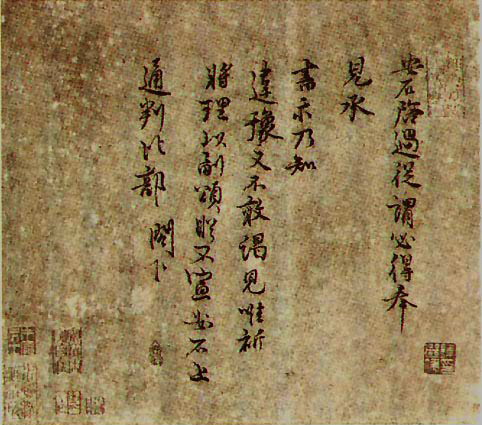 安石啓過從謂必得奉
見承
書示乃知
違豫又不敢謁見唯祈
將理以副頌咏不宣安石上
通判比部 閤下